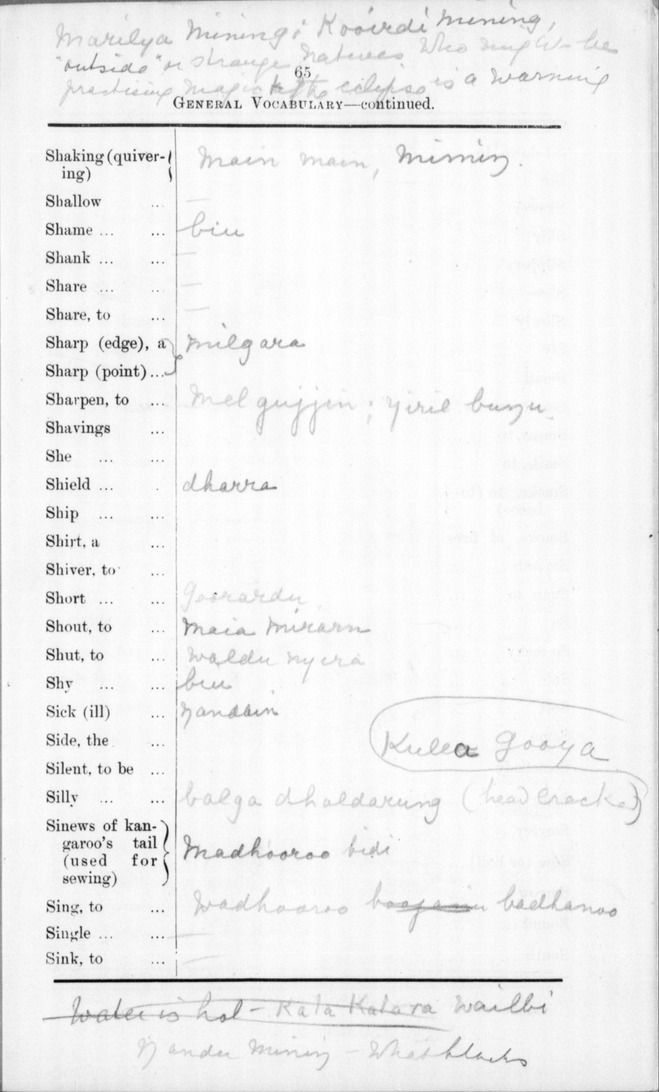 Marilya Mining; Kooirdi Mining,
"outside" or strange natives who might be
65
practising magic the eclipse is a warning
GENERAL VOCABULARY—continued.
Shaking (quivering) main main, mirning.
Shallow ... —
Shame ... ... biu
Shank ... ... —
Share ... ... —
Share, to ... —
Sharp (edge), a milgara
Sharp (point)...
Sharpen, to ... mel gujjin; yiril bunju
Shavings ...
She ... ...
Shield ... . dharra
Ship ... ...
Shirt, a ...
Shiver, to ...
Short ... ... goorardu
Shout, to ... maia mirarn
Shut, to ... waldu nyira
Shy ... ... biu
Sick (ill) ... yandain
Side, the ...
Kulea gooya
Silent, to be ...
Silly ... ... balga dhaldarung (head cracked)
Sinews of kan-
garoo's tail
(used for
sewing) madhooroo bidi
Sing, to ... wadhooroo badhanoo
Single ... ... —
Sink, to ... —
Water is hot - Kala Kalara wailbi